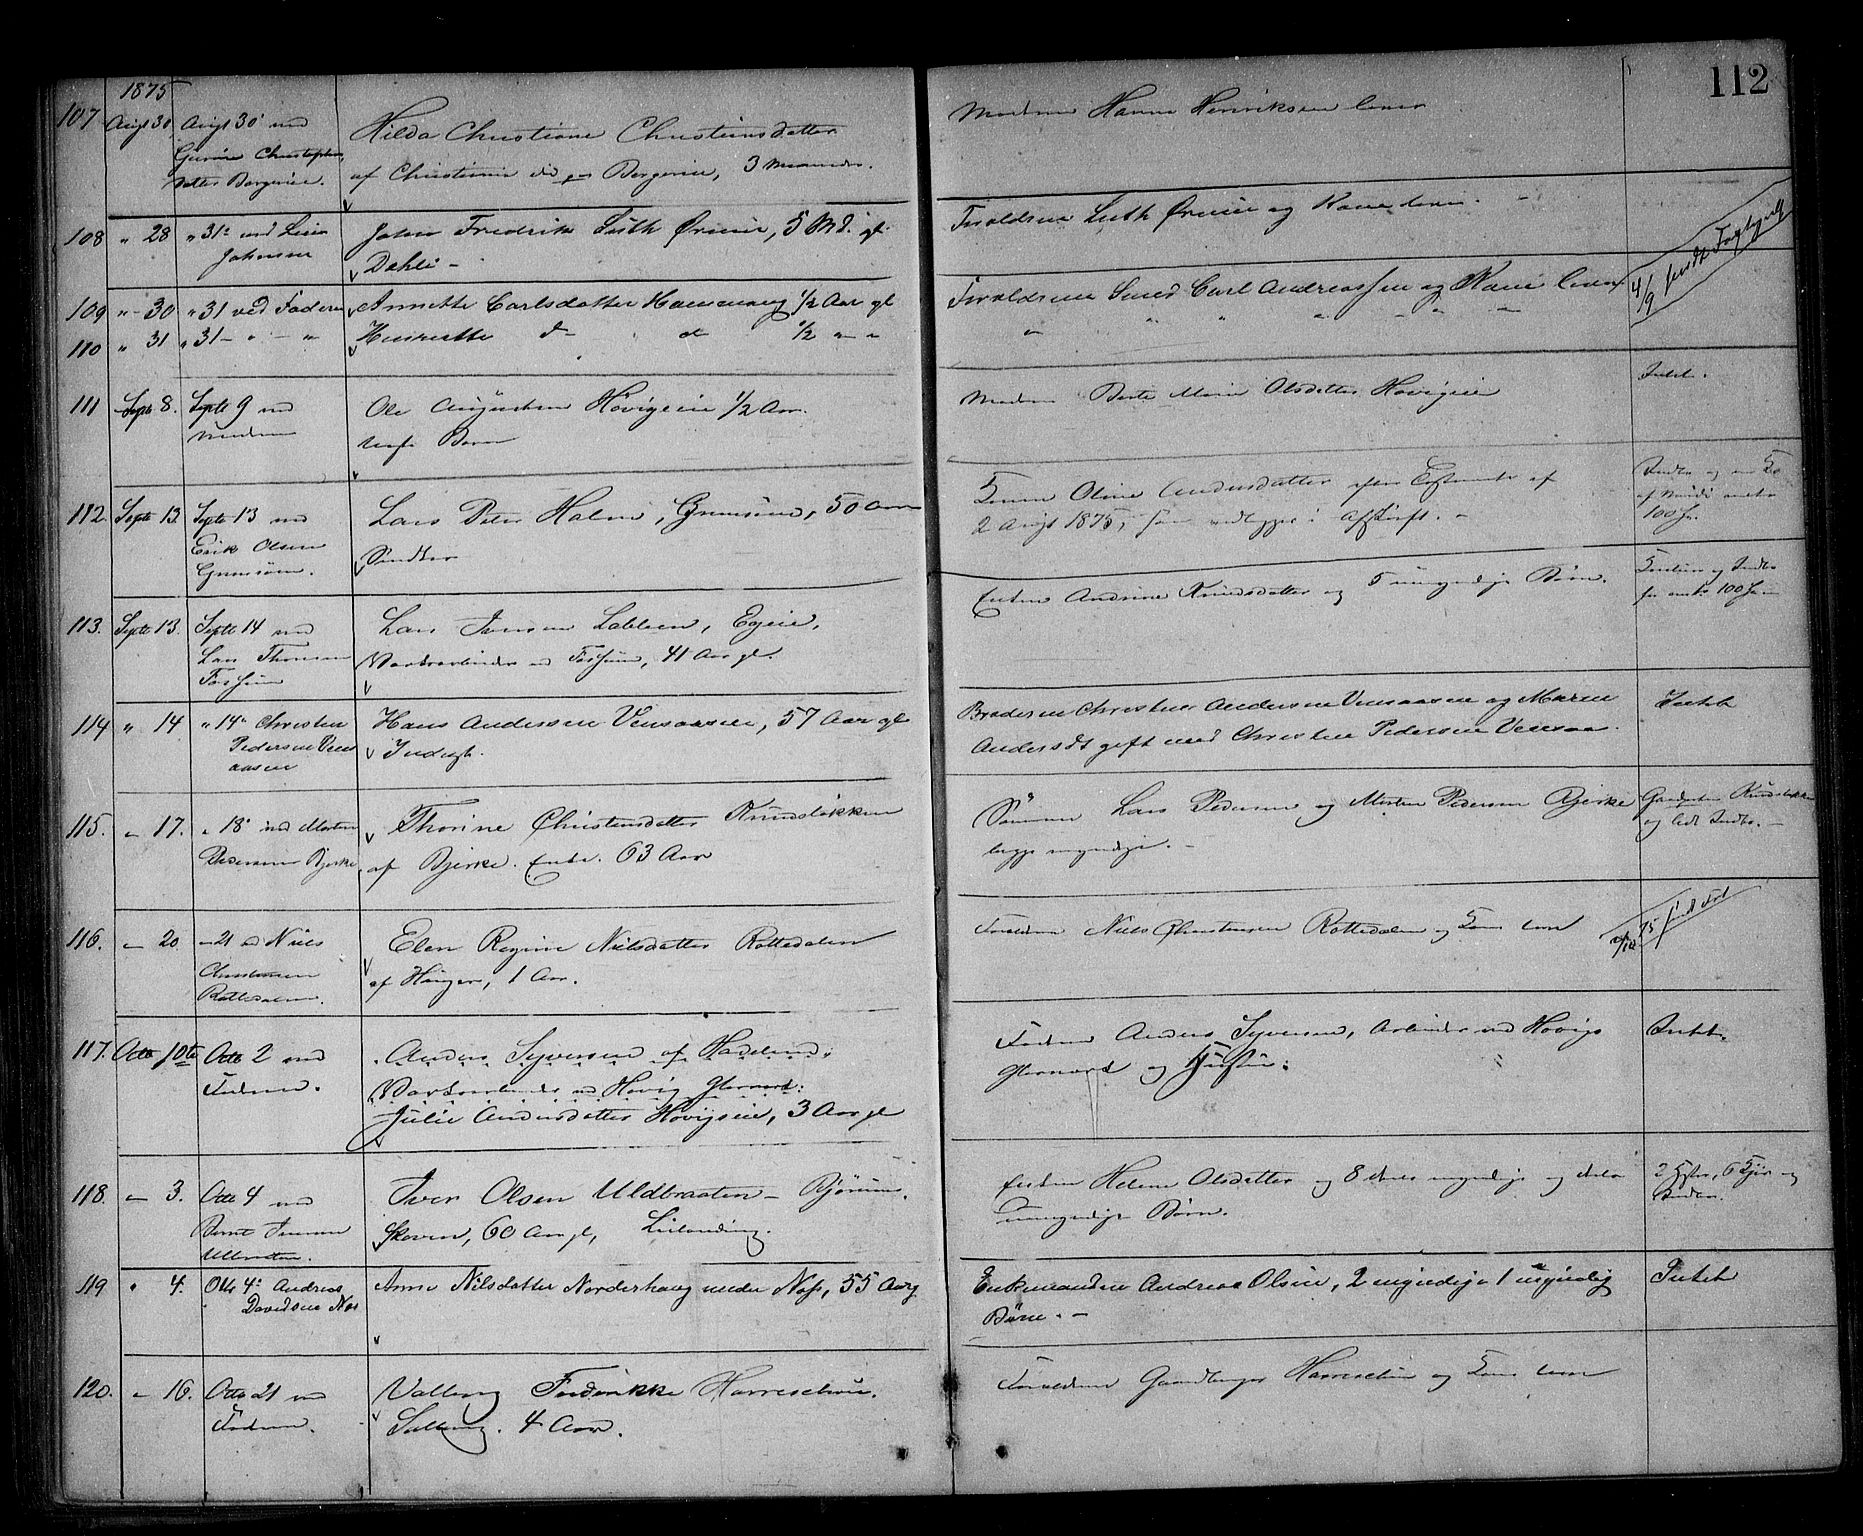 112
1875
107 Augt 30 Augt 30' ved
datter Bergereie.
Hilda Christiane Christiansdatter
af Christiania Bergereie, 3 Maaneder.
Moderen Hanna Henriksen lever
108 " 28 " 31' ved
Johansen
Johan Fredrik Luth Øreneie, 5 Md. gl.
Dahli -
Forældrene Luth Øreneie og Kone lever. -
109 " 30 " 31 ved Faderen Annette Carlsdatter Hammang 1/2 Aar gl
Forældrene Smed Carl Andreassen og Kone lever
4/9 sendt
110 " 31 " 31 - " - " Henriette d " d 1/2 " "
111 Septe 8. Septe 9 ved
Moderen
Ole Augustsen Høvigeie 1/2 Aar.
uægte Barn
Moderen Berte Marie Olsdatter Høvigeie
Intet.
112 Septe 13. Septe 13 ved
Erik Olsen
Lars Peter Holm, 50 Aar
Snedker
Konen Oline Andersdatter efter Testamente af
2 Augt 1875, som vedlægges i Afskrift. -
Indbo og
100 Kr.
113. Septe 13. Septe 14 ved
Lars Thoresen
Fossum
Lars Jensen Løkken, Egeeie,
Værksarbeider ved Fossum, 41 Aar gl.
Enken Andrine Knudsdatter og 5 umyndige Børn.
og Indbo
for 100 Kr
114 " 14 " 14' Christen
Pedersen Vens
aasen
Hans Andersen Vensaaseie, 57 Aar gl
Inderst.
Broderen Christen Andersen Vensaasen og Maren
Andersdt gift med Christen Pedersen Vensaas.
Intet
115. " 17. " 18' ved Morten
Pedersen Bjerke
Thorine Christensdatter Knudsløkken
af Bjerke. Enke. 63 Aar
Sønnerne Lars Pedersen og Morten Pedersen Bjerke
begge myndige. -
Gaardparten Knudsløkken
og lidt Indbo. -
116. " 20. " 21 ved Niels
Christensen
Rottedalen.
Elen Regine Nielsdatter Rottedalen
af Hauger, 1 Aar.
Forældrene Niels Christensen Rottedalen og Kone lever
117. Octb 10te Octb 2 ved
Faderen.
Anders Syversen af Hadeland,
Værksarbeider ved Høvig Glasværk:
Julie Andersdatter Høvigseie, 3 Aar gl
Faderen Anders Syversen, Arbeider ved Høvigs
Glasværk og Hustru.
Intet.
118. " 3. Octb 4 ved
Bernt Iversen
Ulbraten.
Iver Olsen Uldbraaten - Bjørum
Skoven, 60 Aar gl, Leilænding.
Enken Helene Olsdatter og 8 deels myndige og deels
umyndige Børn.
2 Heste, 6 Kjør og
Indbo.
119 " 4. Octb 4' Andreas
Davidsen Nas
Anne Nilsdatter Norderhaug under Næs, 55 Aar g
Enkemanden Andreas Olsen, 2 myndige 1 umyndig
Børn. -
Intet
120. " 16. Octb 21 ved
Faderen.
Valborg Fredrikke Harreschou.
Solberg. 4 Aar.
Forældrene Gaardbruger Harreschou og Kone lever